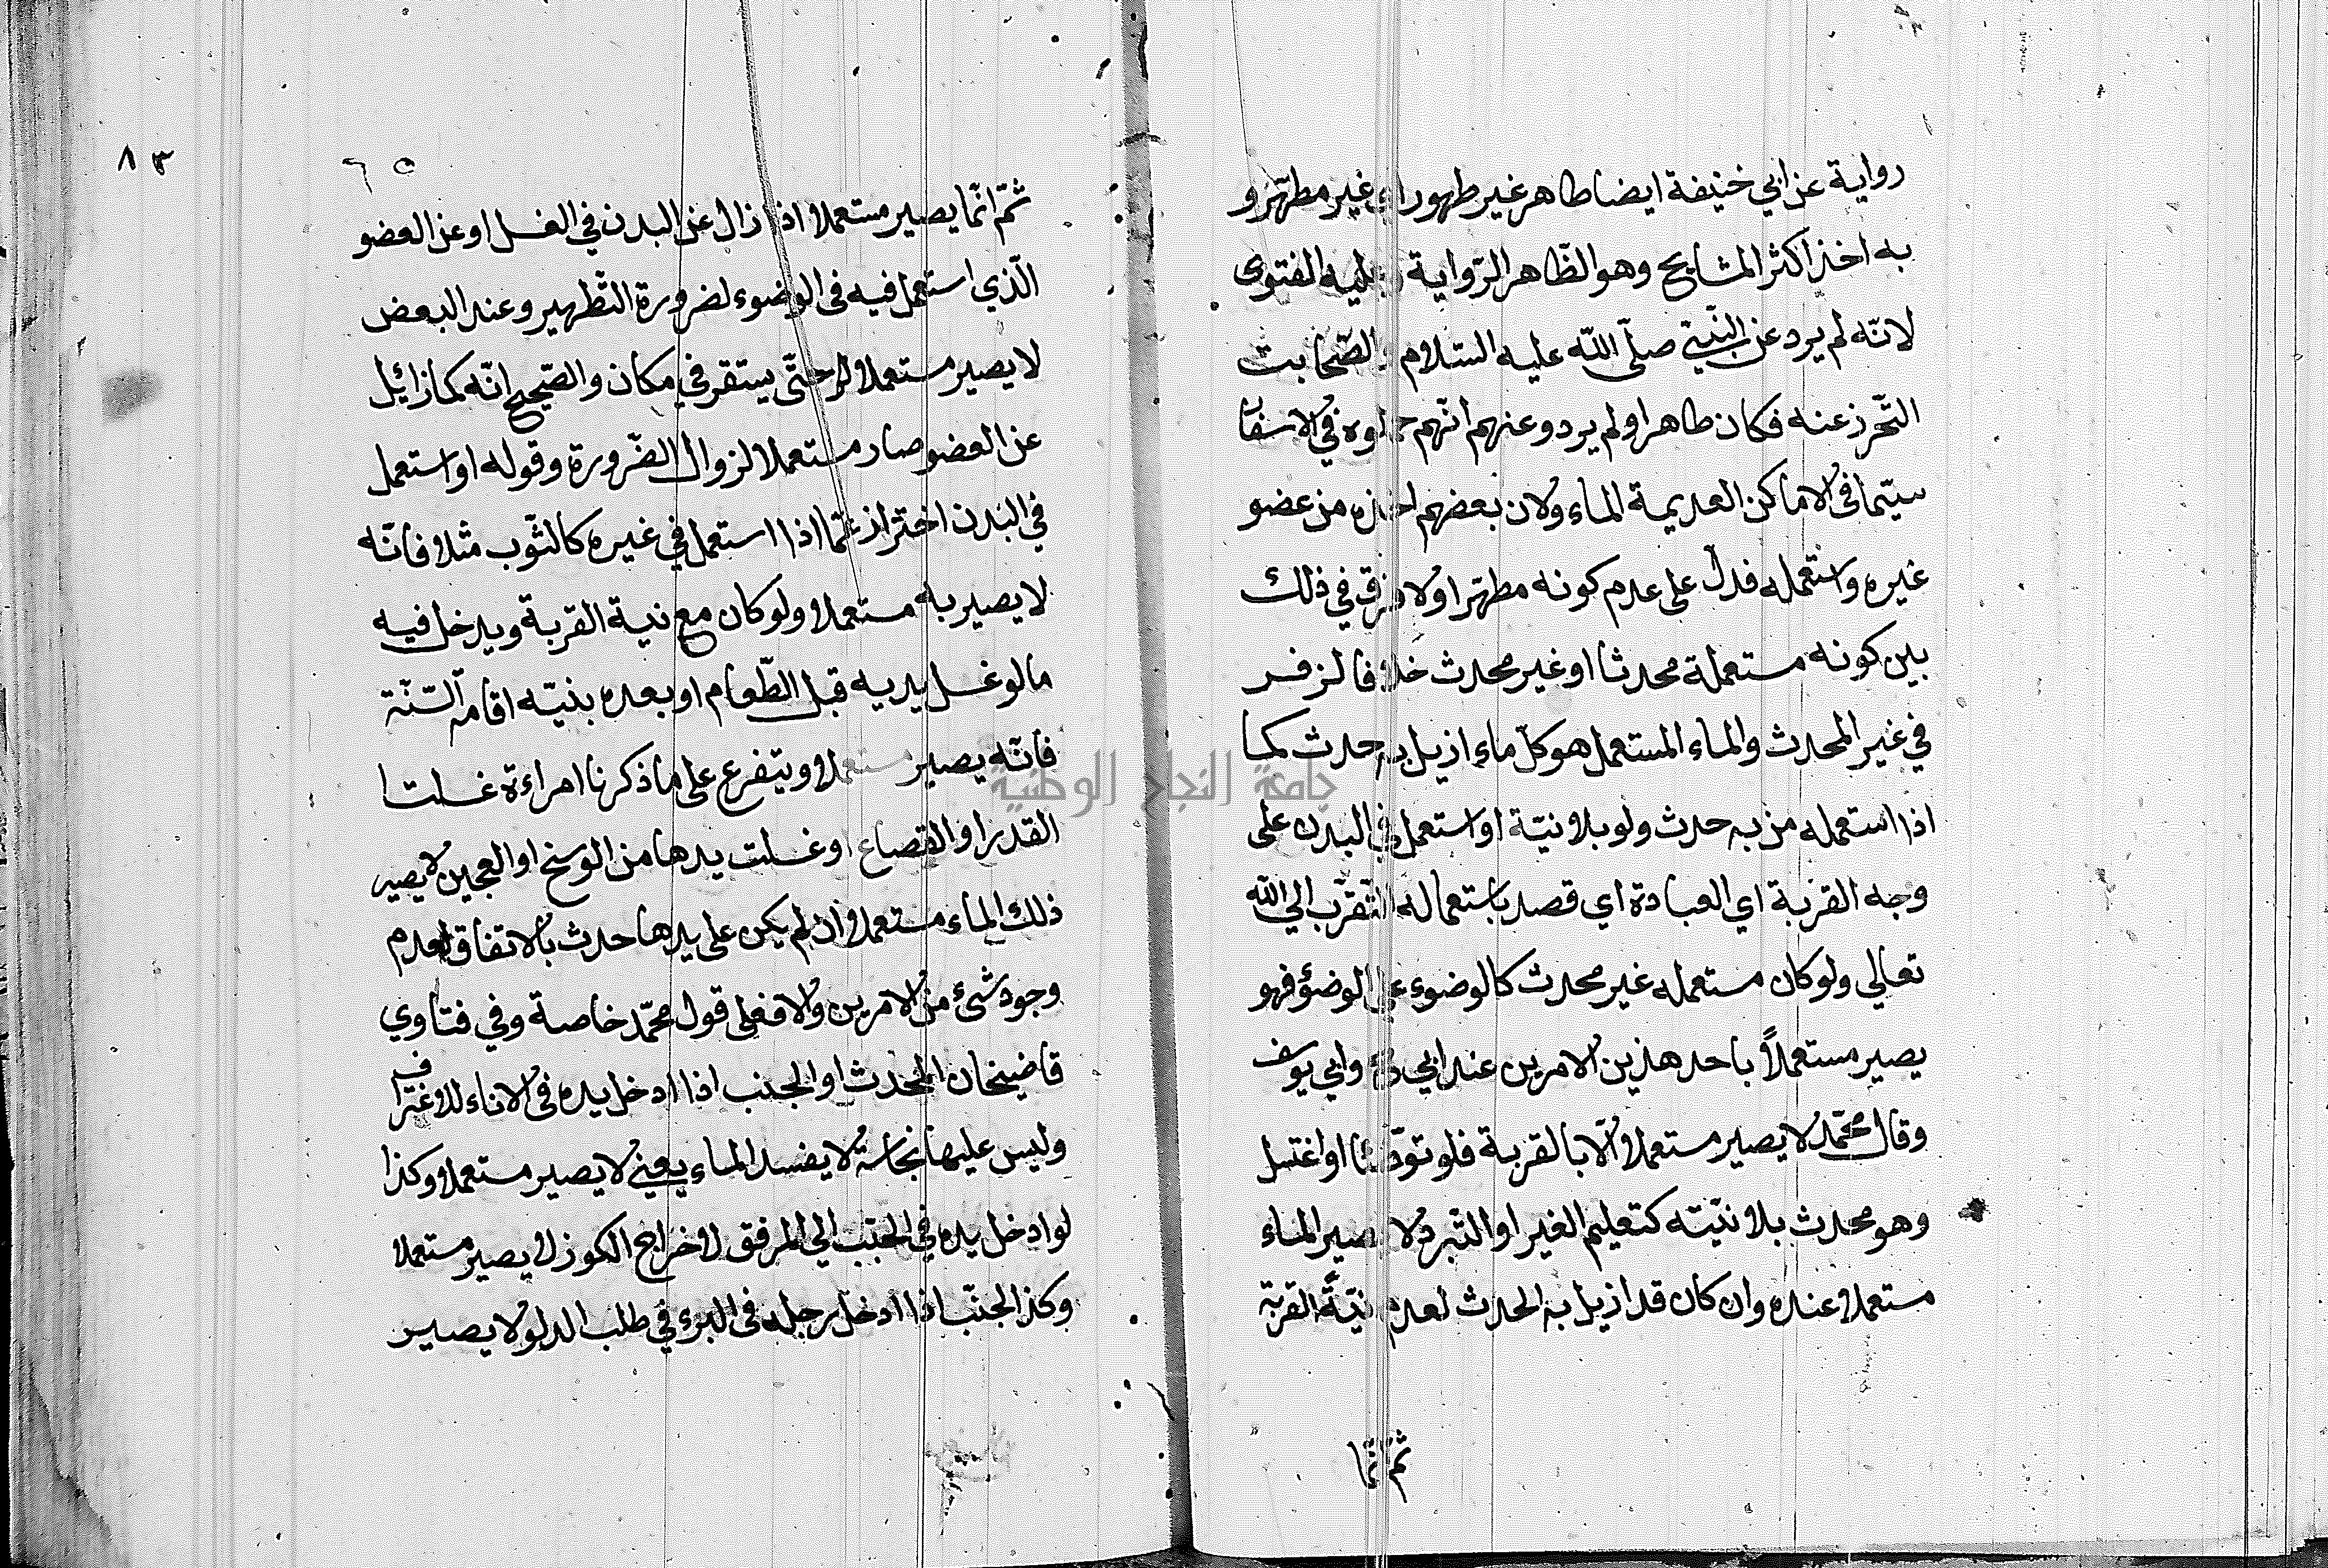 رواية عن ابي حنيفة ايضا طاهر غير طهور اي غير مطهّر و
به اخذ اكثر المشايخ وهو الظّاهر الرّواية وعليه الفتوى
لانّه لم يرد عن النّبيّ صلّى اللّه عليه السّلام والصّحابت
التّحرّز عنه فكان طاهرا ولم يردو عنهم انّهم حملوه في الاسفا
سيّما في الاماكن العديمة الماء ولان بعضهم اخذه من عضو
غيره واستعمله فدل على عدم كونه مطهّرا ولا فرق في ذلك
بين كونه مستعملة محدثا او غير محدث خلافا لزفر
في غير المحدث والماء المستعمل هو كلّ ماء ازيل به حدث كما
اذا استعمله من به حدث ولو بلا نيّة او استعمل في البدن على
وجه القربة اي العبادة اي قصد باستعماله التّقرّب الي اللّه
تعالي ولو كان مستعمله غير محدث كالوضوء علي الوضؤ فهو
يصير مستعملاً باحد هذين الامرين عند ابي ح وابي يوسف
وقال محمّد لا يصير مستعملا الّا بالقربة فلو توضّئا او اغتسل
وهو محدث بلا نيّته كتعليم الغير او التّبرد لا يصير الماء
مستعملا عنده وان كان قد ازيل به الحدث لعدم نيّة القربة
ثمّ انّما
٨٣
٦٥
ثمّ انّما يصير مستعملا اذا زال عن البدن في الغسل او عن العضو
الّذي استعمل فيه في الوضوء لضرورة التّطهير وعند البعض
لا يصير مستعملا حتّى يستقر في مكان والصّحيح انّه كما زائل
عن العضو صار مستعملا لزوال الضّرورة وقوله او استعمل
في البدن احتراز عمّا اذا استعمل في غيره كالثّوب مثلا فانّه
لا يصير به مستعملا ولو كان مع نيّة القربة ويدخل فيه
ما لو غسل يديه قبل الطّعام او بعده بنيّه اقامة السّنّة
فانّه يصير مستعملا ويتفرع على ما ذكرنا امراءة غسلت
القدر او القصاع او غسلت يدها من الوسخ او العجين لا يصير
ذلك الماء مستعملا ان لم يكن على يدها حدث بالاتفاق لعدم
وجود شئ من الامرين والا فعلى قول محمّد خاصة وفي فتاوي
قاضيخان المحدث او الجنب اذا ادخل يده في الاناء للاغتراف
وليس عليها نجاسة لا يفسد الماء يعني لا يصير مستعملا وكذا
لو ادخل يده في الجبّ الي المرفق لاخراج الكوز لا يصير مستعملا
وكذا الجنّب اذا ادخل رجله في البرء في طلب الدلو لا يصير
جامعة النجاح الوطنية